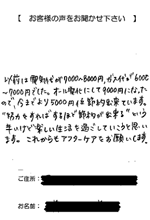 【 お客様の声をお聞かせ下さい 】
以前は電気代が7000〜8000円、ガス代が6000
〜7000円でした。オール電化にして9000円になった
ので、今までより5000円も節約出来ています。
"努力をすればするほど節約が出来る"という
早いけど楽しい生活を過ごしていこうと思い
ます。これからもアフターケアをお願いします。
ご住所：
お名前：